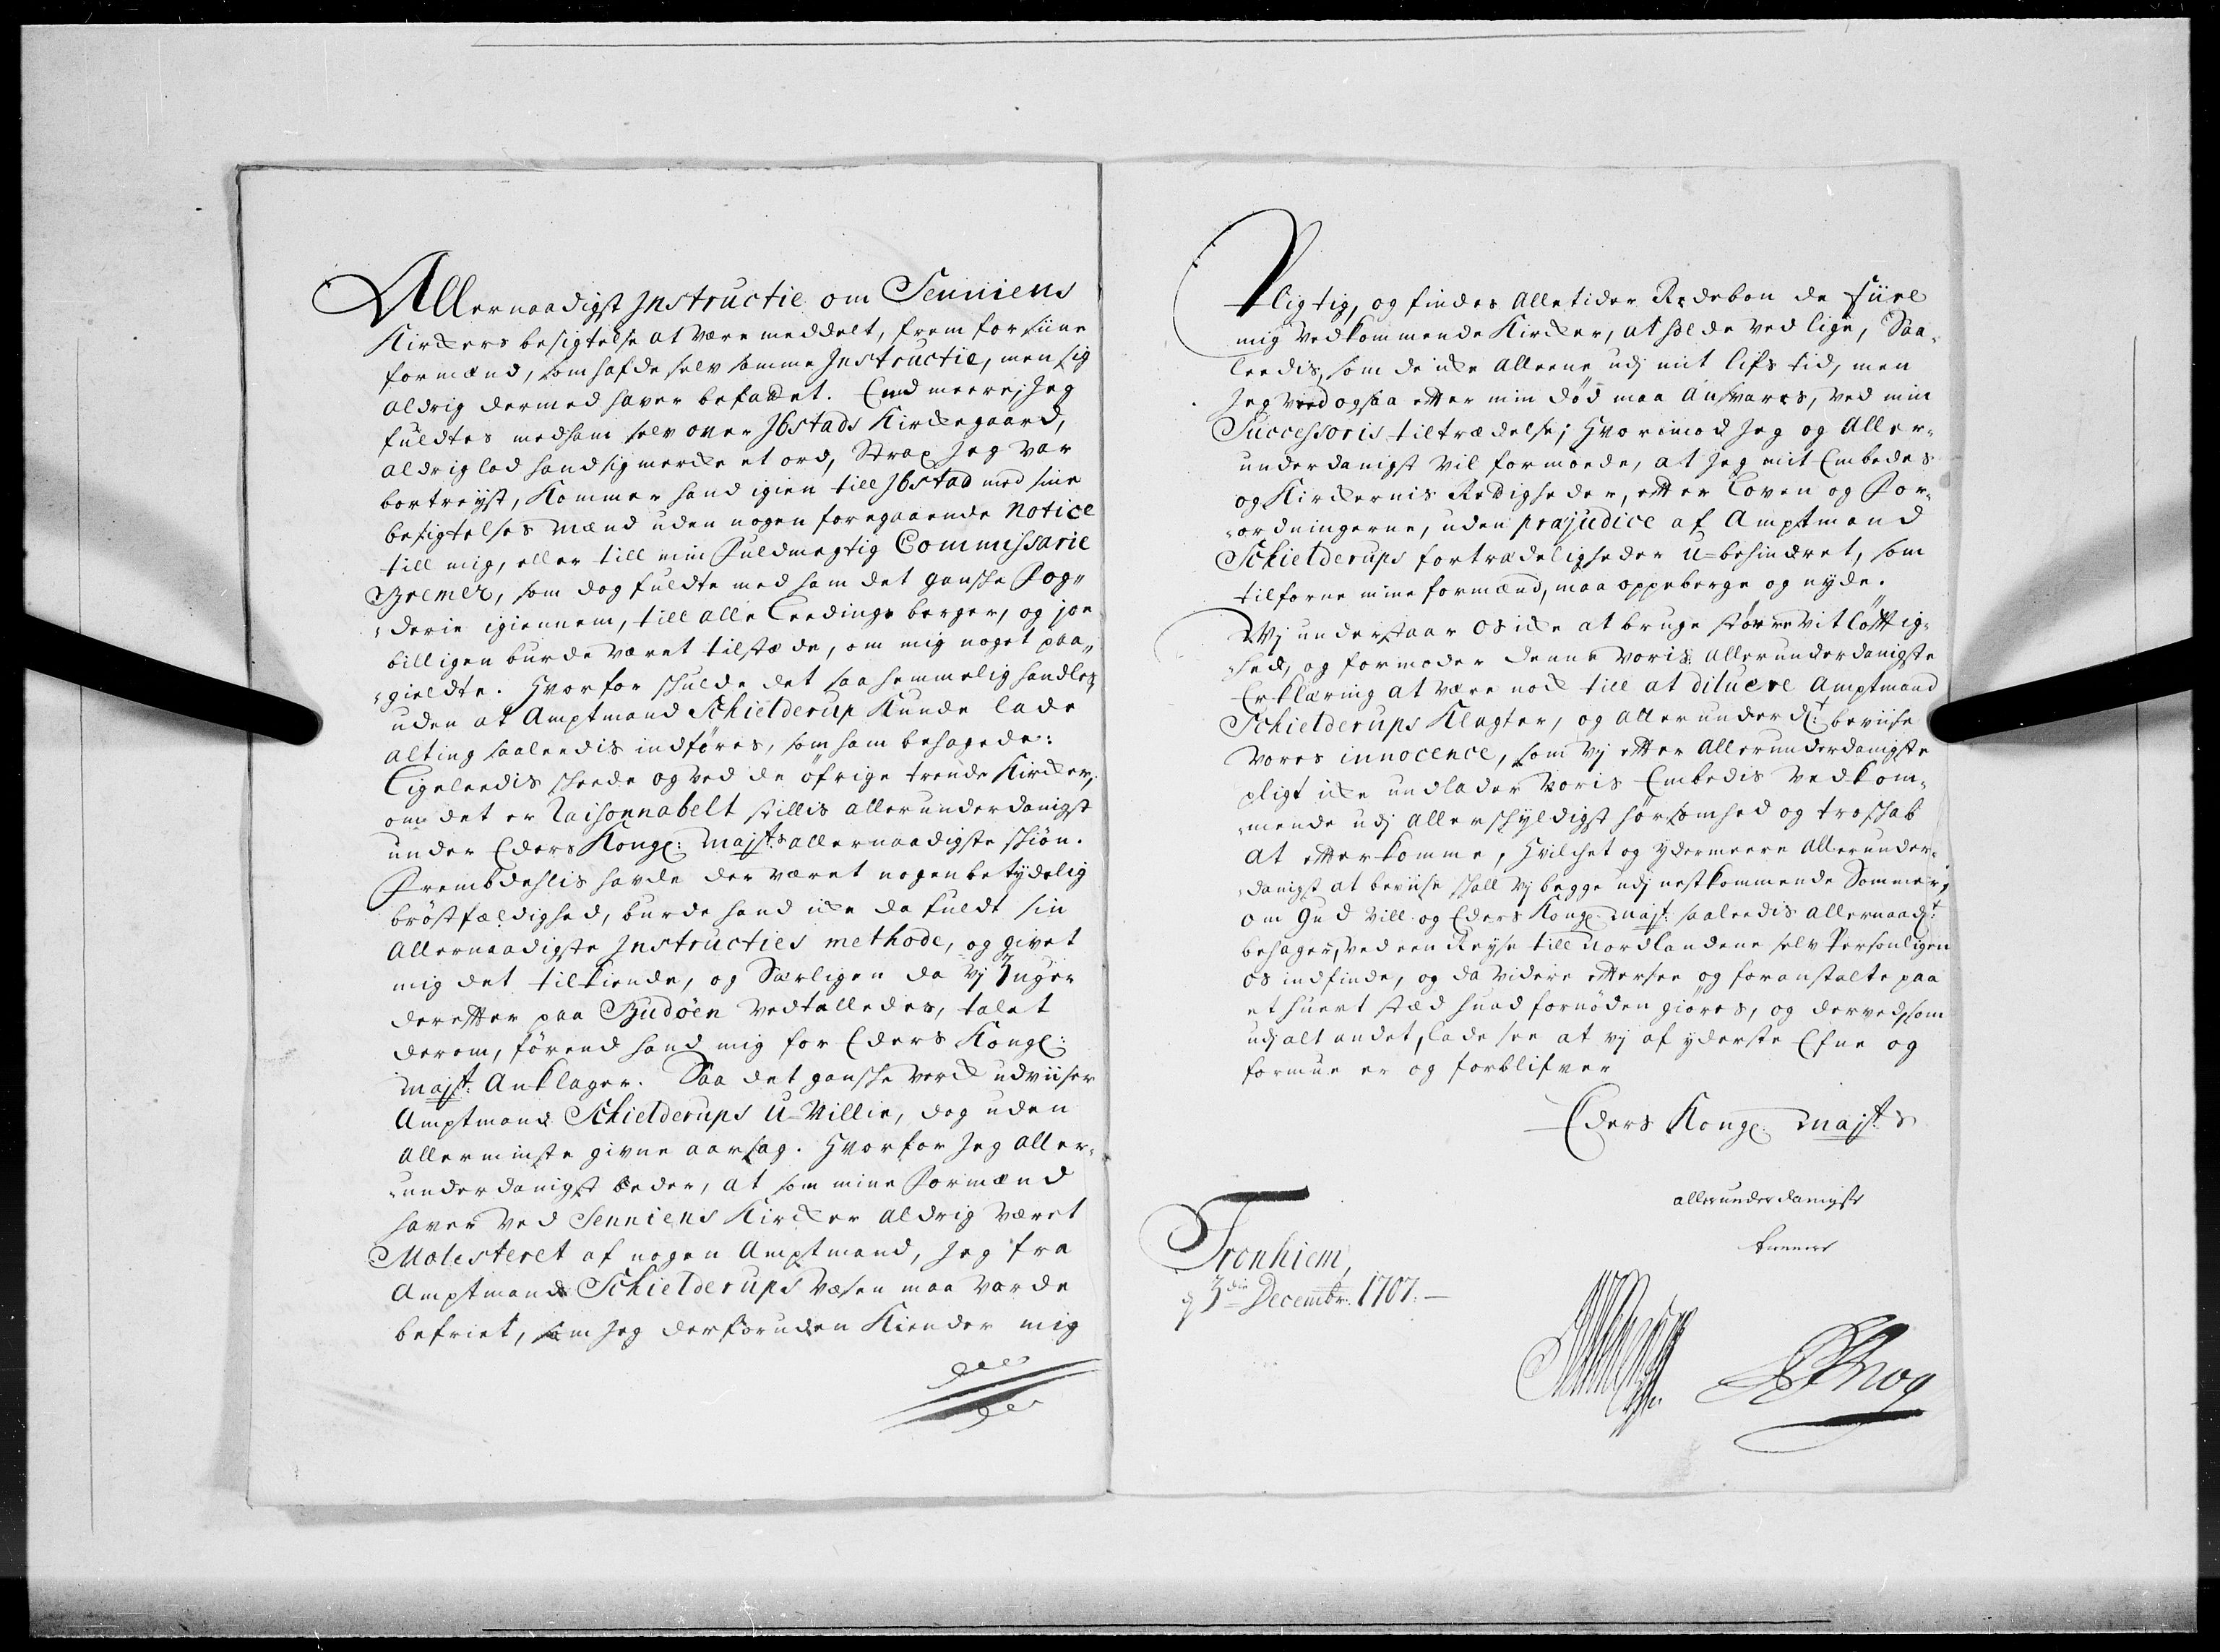 Allernaadigst Instructie om Senniens
Kirckers besigtelse at være meddelt, frem for siine
formænd, som hafde selv samme Instructie, men sig
aldrig dermed haver befattet. End meere, Jeg
fuldtes med ham selv over Ibstads Kirckegaard,
aldrig lod hand sig mercke et ord, Strax Jeg var
bortreyst, Kommer hand igien till Ibstad med sine
besigtelses mænd uden nogen foregaaende Notice
till mig, eller till min Fuldmegtig Commissarie
Bremer, som dog fuldte med ham det gansche Fog„
„derie igiennem, till alle Leedings berger, og jo
billigen burde været tilstæde, om mig noget paa„
„gieldte. Hvorfor schulde det saa hemmelig handles,
uden at Amptmand Schielderup Kunde lade
alting saaleedis indføres, som ham behagede:
Ligeleedis scheede og ved de öfrige trende Kircker,
om det er Raisonnabelt stillis allerunderdanigst
under Eders Kongl: Majsts allernaadigste schiøn.
Frembdehlis havde der været nogen betydelig
bröstfældighed, burde hand icke da fuldt sin
Allernaadigste Instructies methode, og givet
mig det tilkiende, og Særligen da vj 3 uger
derefter paa Budöen vedtalledes, talet
derom, förend hand mig for Eders Kongl:
Majst: Anklager. Saa det gansche verck udviiser
Amptmand Schielderups U-Villie, dog uden
Allerminste givne aarsag. Hvorfor Jeg aller„
„underdanigst beder, at som mine Formænd
haver ved Senniens Kircker aldrig været
Molesteret af nogen Amptmand, Jeg fra
Amptmand Schielderups væsen maa vorde
befriet, som Jeg derforuden Kiender mig
Pligtig, og findes Alletider Redebon de fiire
mig vedkommende Kircker, at holde ved lige, Saa„
leedis, som de icke alleene udj mit lifs tid, men
Jeg ved ogsaa efter min død maa ansvares, ved min
Successoris tiltrædelse; Hvorimod Jeg og Aller„
underdanigst vil formoede, at Jeg mit Embedes
og Kirckernis Rettigheder, efter Loven og For„
„ordningerne, uden præjudice af Amptmand
Schielderups fortrædeligheder U-behindret, som
tilforne mine formænd, maa oppeberge og nyde.
Vj understaar os icke at bruge større vitløftig„
„hed, og formoder denne voris allerunderdanigste
Erklæring at være nock till at diluere Amptmand
Schielderups Klagter, og allerunderdt: beviise
vores innocence, som vj efter Allerunderdanigste
pligt icke undlader voris Embedis vedkom„
„mende udj allerschyldigst hörsomhed og troschab
at efterkomme, Hvilchet og ydermeere Allerunder„
„danigst at beviise schall vj begge udj nestkommende Sommer,
om Gud vill og Eders Kongl. Majst: saaleedis allernaadt:
behager, ved een Reyse till Nordlandene selv Personligen
os indfinde, og da videre eftersee og foranstalte paa
et huert stæd huad fornöden giöres, og derved, som
udj alt andet, lade see at vj af yderste Efne og
formue er og forblifver
Eders Kongl. Majsts
allerunderdanigste
tienere
Tronhiem,
d 3die Decembr. 1707.